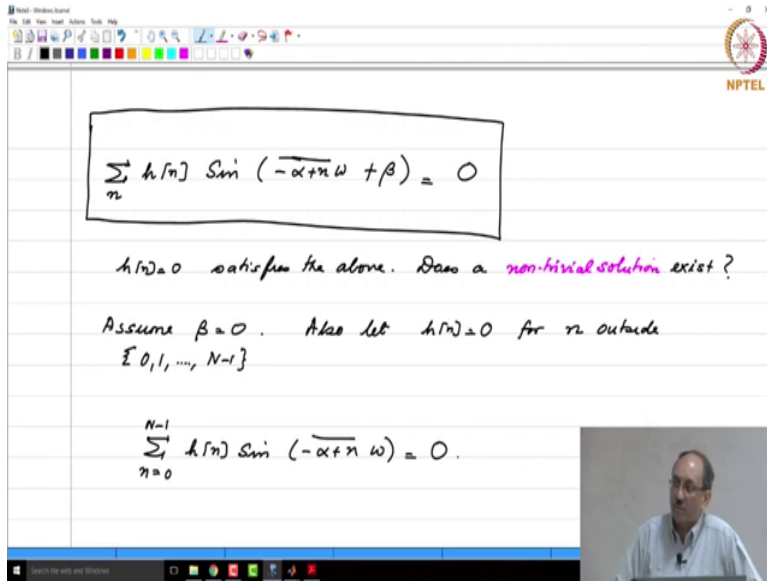 Note1 - Windows Journal
File Edit View Insert Actions Tools Help
NPTEL
∑ h[n] Sin ( \overline{-α+n} ω + β) = 0
n
h[n]=0 satisfies the above. Does a non-trivial solution exist?
Assume β = 0. Also let h[n]=0 for n outside
{0,1, ...., N-1}
N-1
∑ h[n] sin (\overline{-α+n} ω) = 0.
n=0
Search the web and Windows